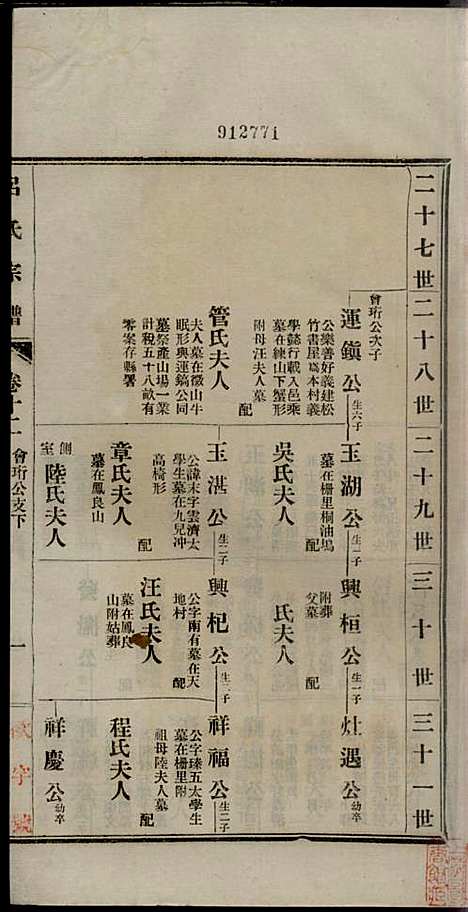 912771
二十七世
二十八世
二十九世
三十世
三十一世
會珩公次子
運鎮公
生六子
公樂善好義建松
竹書屋爲本村義
學懿行載入邑乘
墓在練山下蟹形
附母汪夫人墓
配
管氏夫人
夫人墓在徽山牛
眠形與運鎬公同
墓祭產山場一業
計稅五十八畝有
零案存縣署
玉湖公
生一子
墓在柵里桐油塢
配
吳氏夫人
玉湛公
生二子
公諱末字雲濟太
學生墓在九兒冲
高椅形
配
章氏夫人
墓在鳳良山
側室
陸氏夫人
興桓公
生一子
附葬
父墓
配
氏夫人
興杞公
生二子
公字南有墓在天
地村
配
汪氏夫人
墓在鳳良
山附姑葬
灶遇公
幼卒
祥福公
生二子
公字瑧五太學生
墓在柵里附
祖母陸夫人墓
配
程氏夫人
祥慶公
幼卒
呂氏宗譜
卷十二
會珩公支下
一
字號